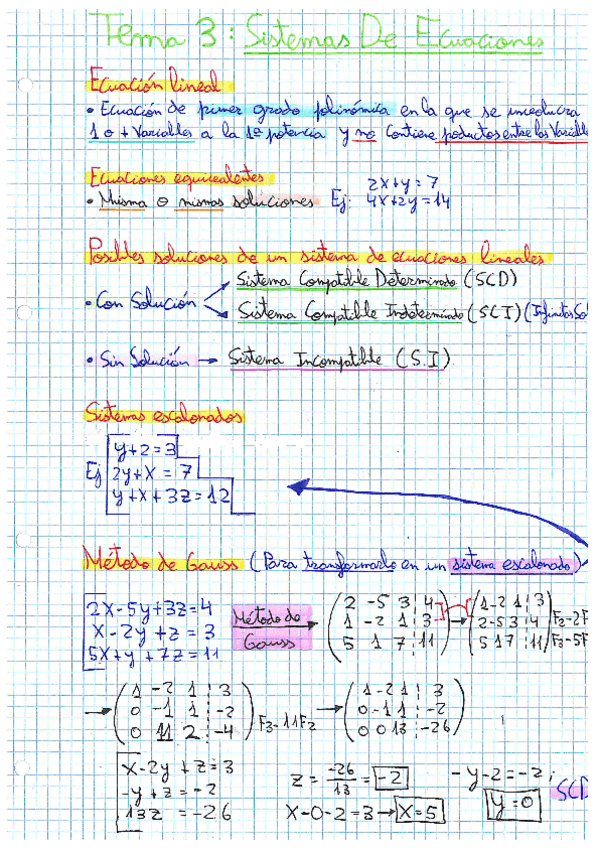 Tema 3: Sistemas De Ecuaciones
Ecuación lineal
• Ecuación de primer grado polinómica en la que se involucra
1 o + Variables a la 1ª potencia y no Contiene productos entre las Variabl
Ecuaciones equivalentes
2x+y=7
• Misma o mismas soluciones Ej: 4x+2y=14
Posibles soluciones de un sistema de ecuaciones lineales
Sistema Compatible Determinado (SCD)
• Con Solución
Sistema Compatible Indeterminado (SCI) (Infinitas So
• Sin Solución → Sistema Incompatible (S.I)
Sistemas escalonados
y+2=3
Ej 2y+x=7
y+x+3z=12
Método de Gauss (Para transformarlo en un sistema escalonado)
2x-5y+3z=4
x-2y+z=3
5x+y+7z=11
Método de
Gauss
2 -5 3 4
1 -2 1 3
5 1 7 11
1 -2 1 3
2 -5 3 4 F2-2F
5 1 7 11 F3-5F
1 -2 1 3
0 -1 1 -2
0 11 2 -4 F3-11F2
1 -2 1 3
0 -1 1 -2
0 0 13 -26
x-2y+z=3
-y+z=-2
13z=-26
z = -26/13 = -2
-y-2=-2;
x-0-2=3 → x=5
y=0
SCD